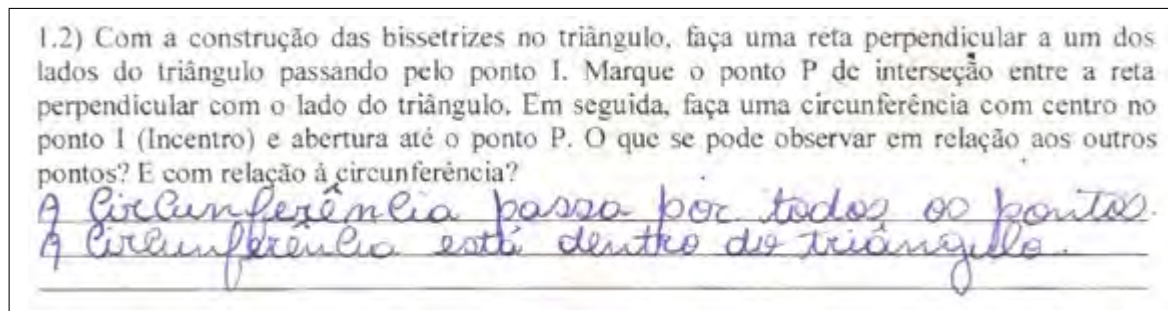 1.2) Com a construção das bissetrizes no triângulo, faça uma reta perpendicular a um dos
lados do triângulo passando pelo ponto I. Marque o ponto P de interseção entre a reta
perpendicular com o lado do triângulo. Em seguida, faça uma circunferência com centro no
ponto I (Incentro) e abertura até o ponto P. O que se pode observar em relação aos outros
pontos? E com relação à circunferência?
A Circunferência passa por todos os pontos.
A Circunferência está dentro do triângulo.